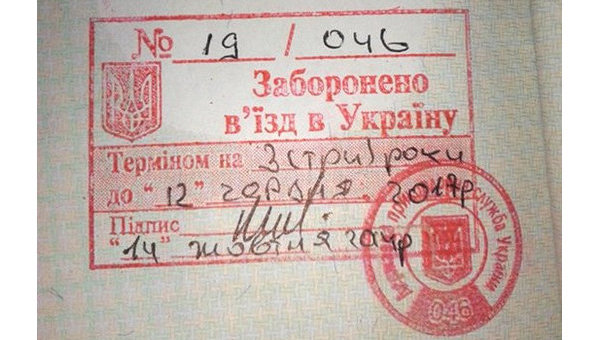 № 19 / 046
Заборонено
в'їзд в Україну
Терміном на 3(три) роки
до "12" 2017р
Підпис
"14" жовтня 2014р
служба України